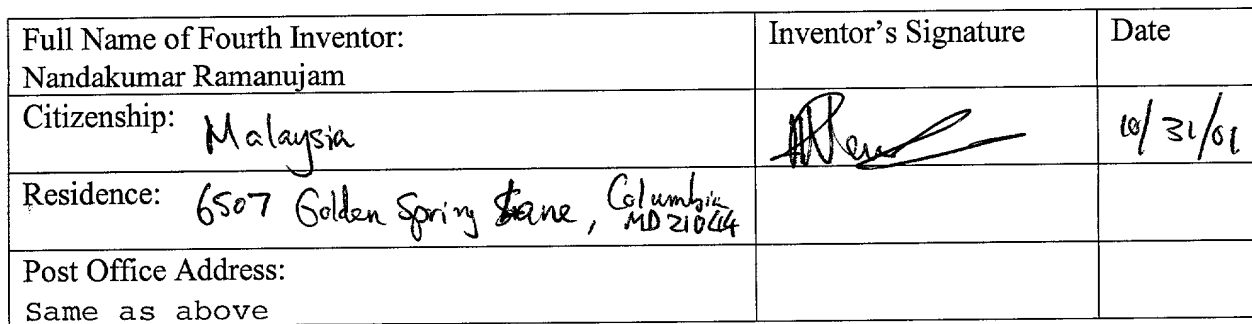 Full Name of Fourth Inventor:
Nandakumar Ramanujam
Inventor's Signature
Date
Citizenship: Malaysia
10/31/01
Residence: 6507 Golden Spring Lane, Columbia
MD 21044
Post Office Address:
Same as above